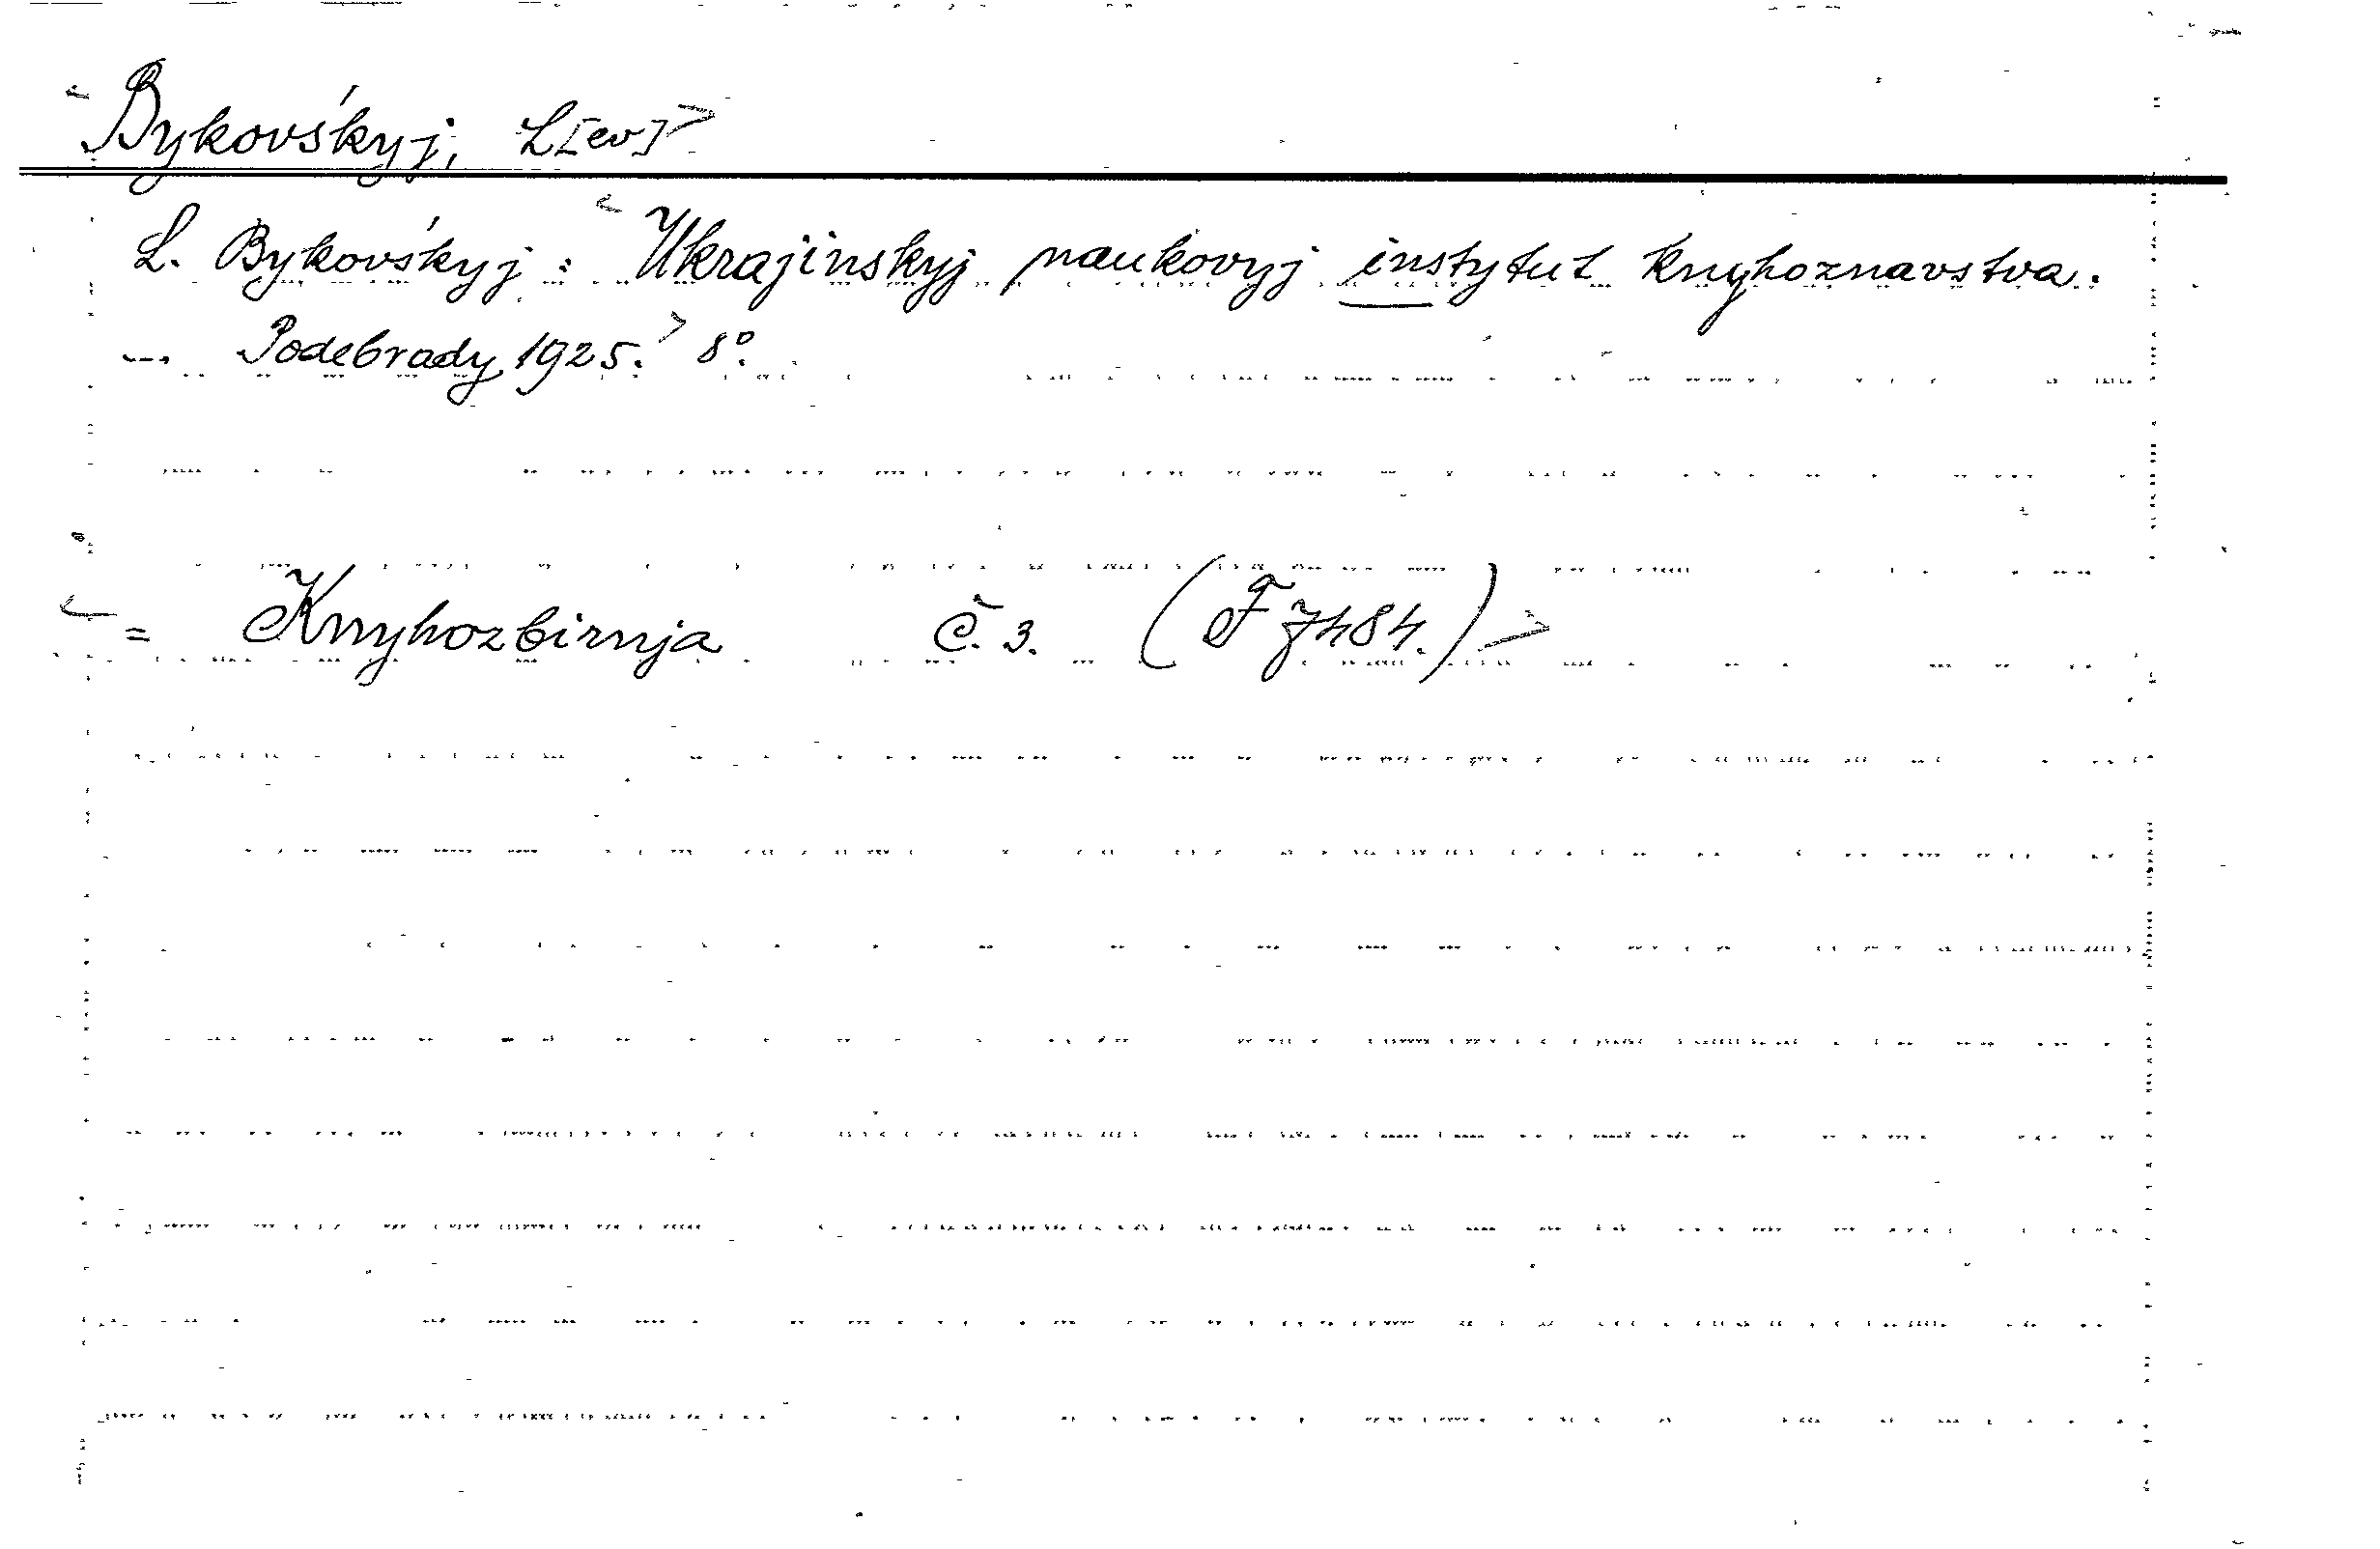 <Bykovśkyj, L[ev]>
L. Bykovśkyj: <Ukrajinskyj naukovyj instytut knyhoznavstva.
—. Podebrady, 1925.> 8°.
<= Knyhozbirnja Č. 3. (F 7484.)>